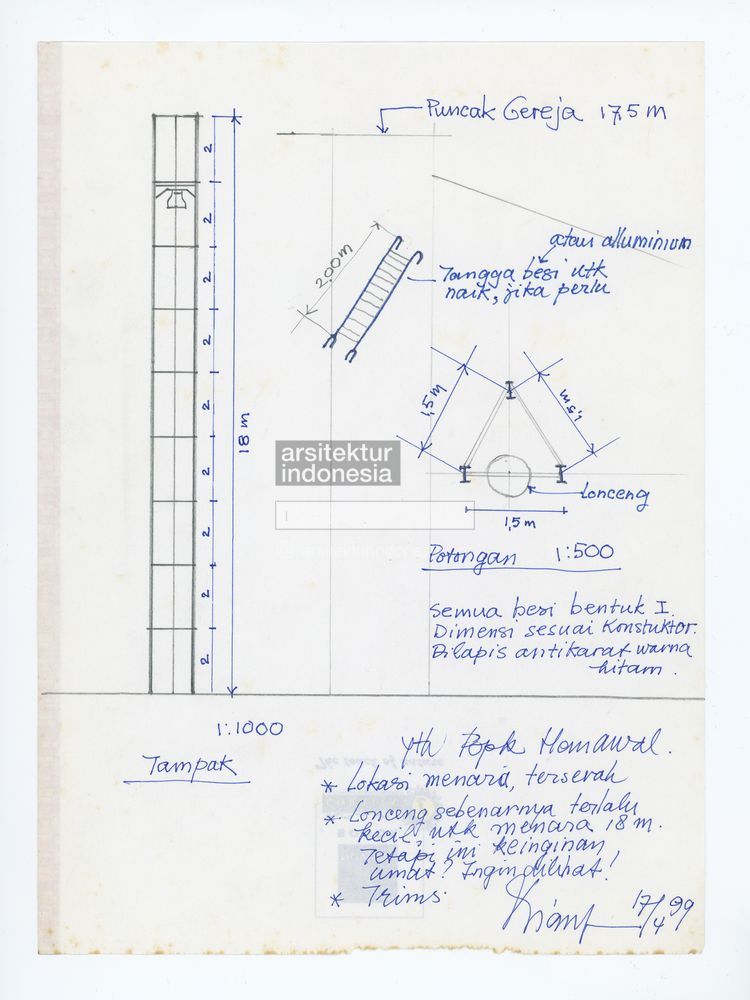 Puncak Gereja 17,5 m
2
2
2
2
2
2
2
2
2
18 m
2.00 m
atau alluminium
Tangga besi utk
naik, jika perlu
1,5 m
1.5 m
arsitektur
indonesia
lonceng
1,5 m
Potongan 1:500
Semua besi bentuk I.
Dimensi sesuai Konstuktor.
Dilapis antikarat warna
hitam.
1:1000
Tampak
Yth Bpk
* Lokasi menara, terserah
* Lonceng sebenarnya terlalu
kecil, utk menara 18 m.
Tetapi ini keinginan
umat? Ingin dilihat!
* Trims.
17/4 99